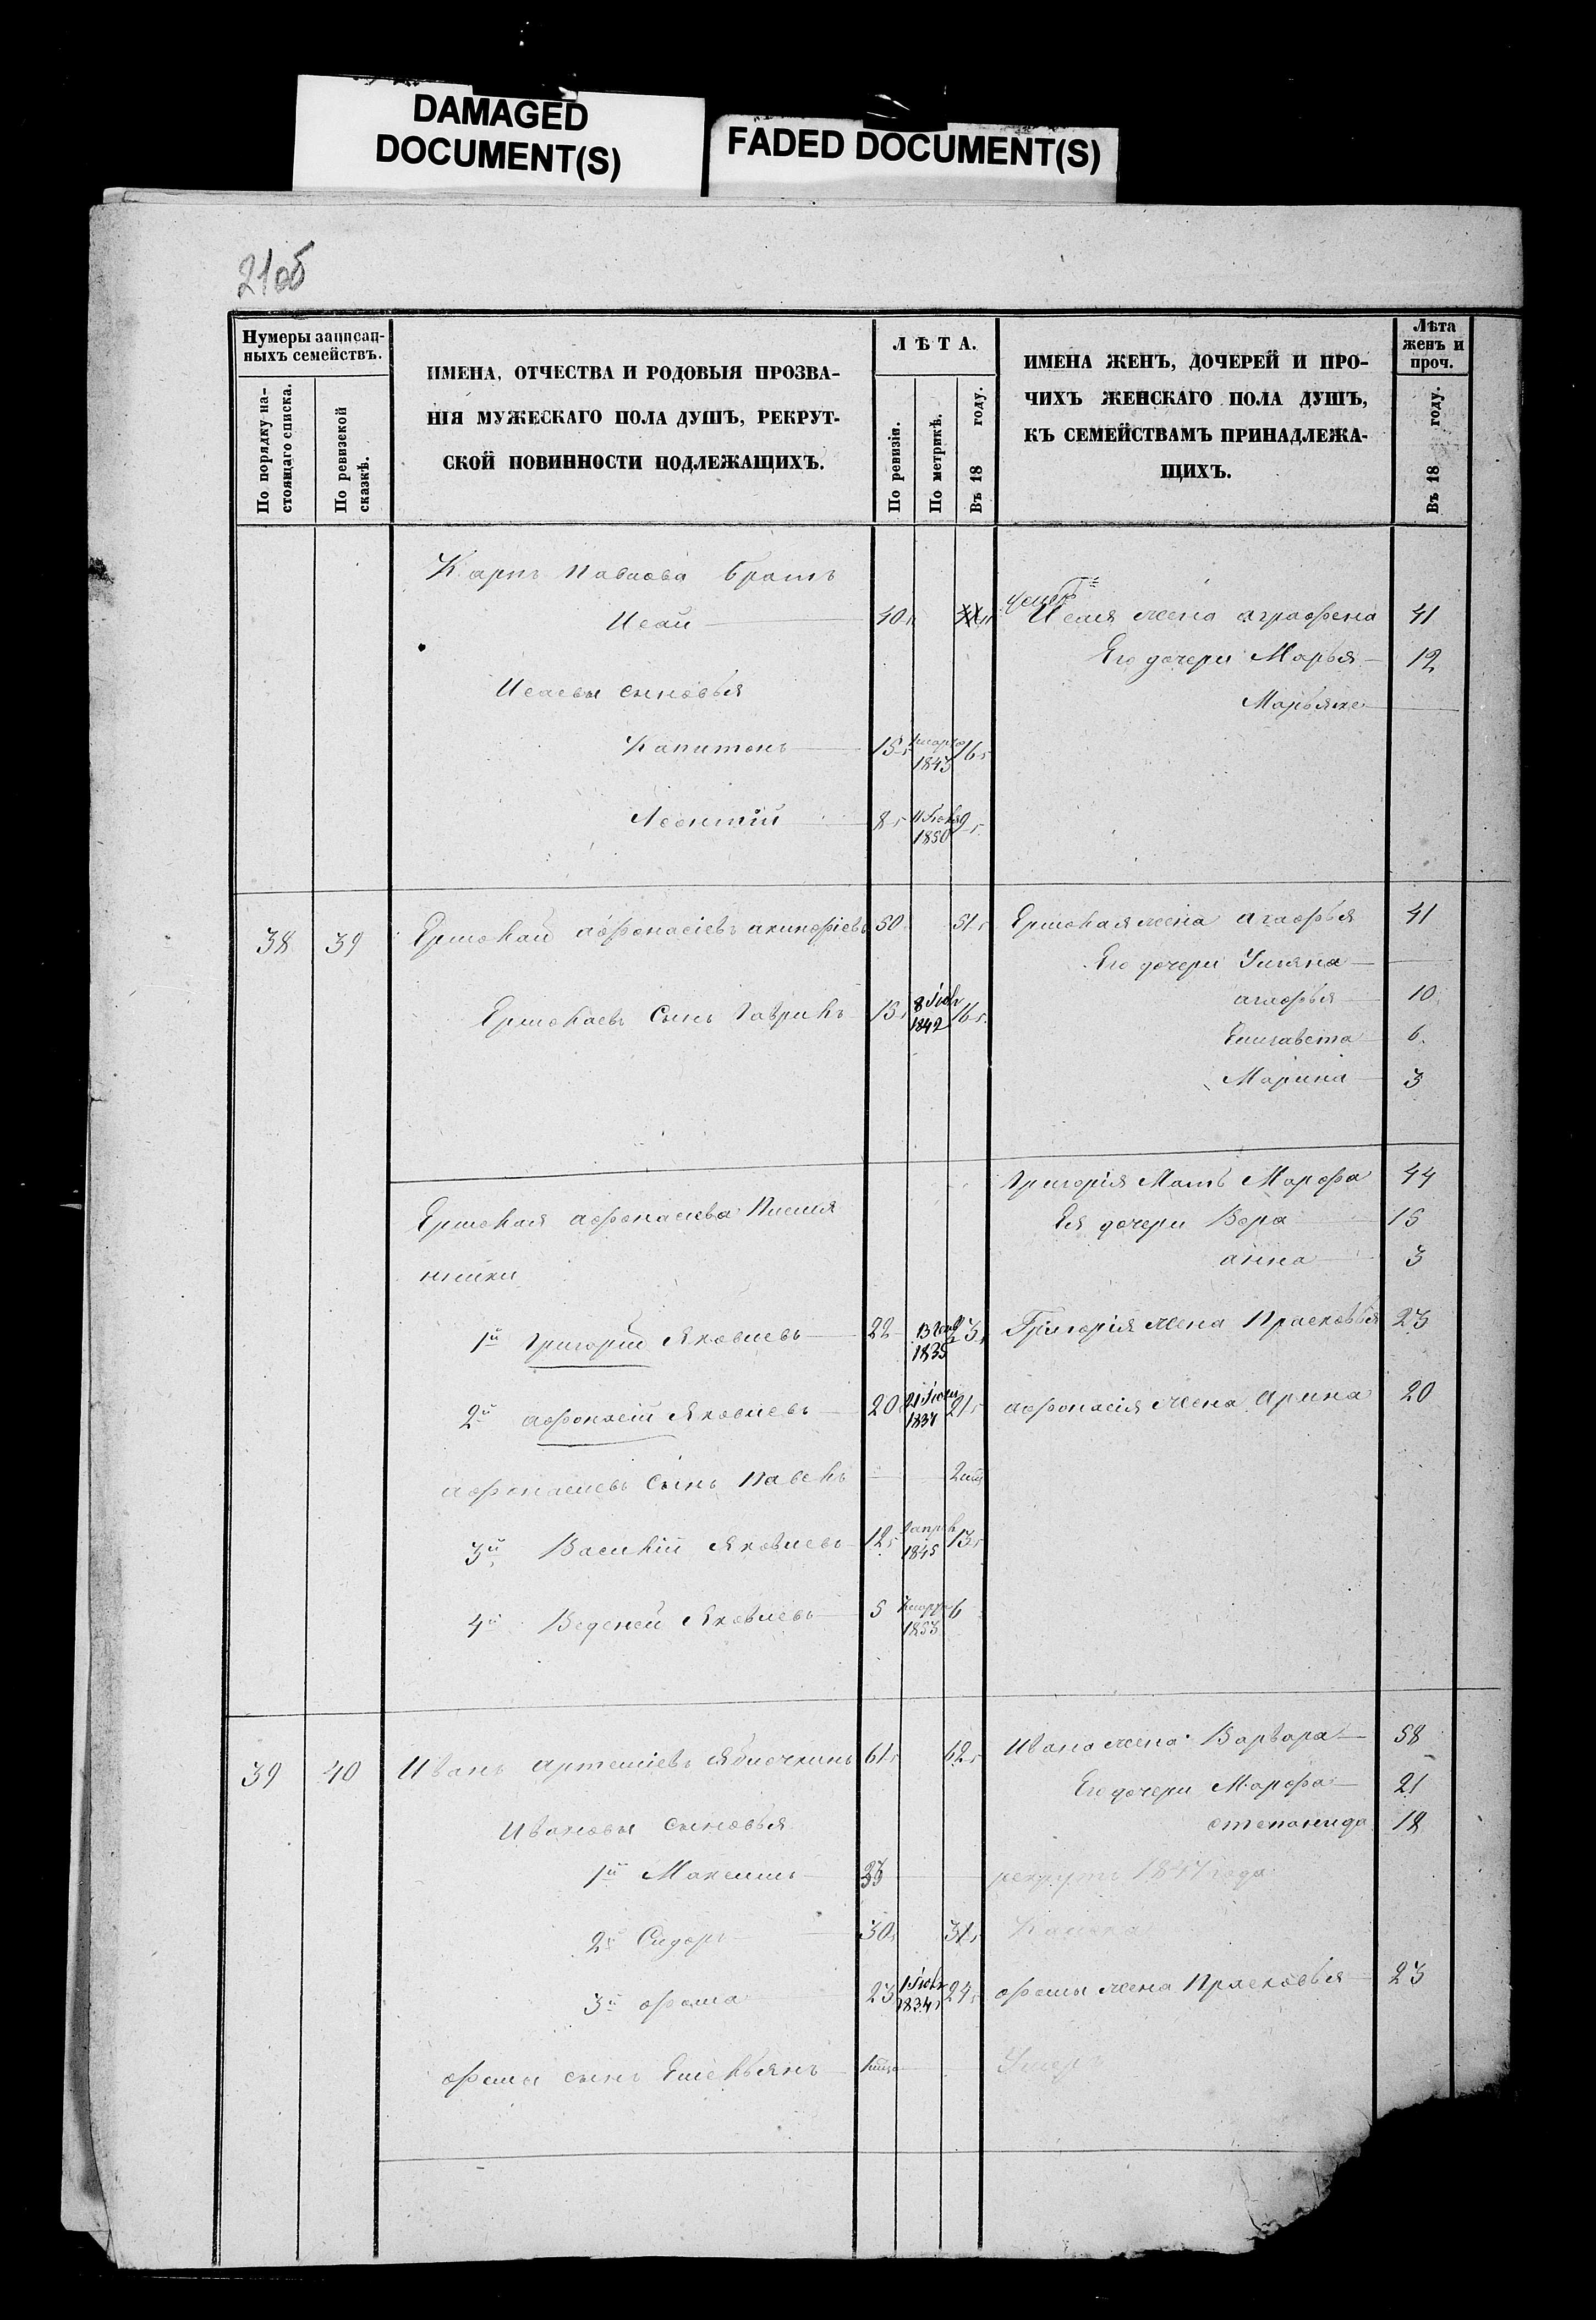 DAMAGED
DOCUMENT(S)
FADED DOCUMENT(S)
21об
Нумеры записан-
ныхъ семействъ.
По порядку на-
стоящаго списка.
По ревизской
сказкѣ.
ИМЕНА, ОТЧЕСТВА И РОДОВЫЯ ПРОЗВА-
НІЯ МУЖЕСКАГО ПОЛА ДУШЪ, РЕКРУТ-
СКОЙ ПОВИННОСТИ ПОДЛЕЖАЩИХЪ.
ЛѢТА.
По ревизіи.
По метрикѣ.
Въ 18 году.
ИМЕНА ЖЕНЪ, ДОЧЕРЕЙ И ПРО-
ЧИХЪ ЖЕНСКАГО ПОЛА ДУШЪ,
КЪ СЕМЕЙСТВАМЪ ПРИНАДЛЕЖА-
ЩИХЪ.
Лѣта
женъ и
проч.
Въ 18 году.
Карпа Павлова братъ
Исай 40 Исая жена аграфена 41
Его дочери Марья 12
Исаевы сыновья
Марья же
Капитонъ 15 1843 16
Леонтій 8 1850 9
38 39 Ермолай афонасіевъ 50 51 Ермолая жена агафья 41
Его дочери Ульяна
агафья 10
Ермолаевъ сынъ Гаврилъ 15 8 Іюл 1842 16
Елизавета 6
Марина 3
Григорія Мать Марфа 44
Ермолая афонасіева Племя
Ея дочери Вера 15
нники
анна 3
1й Григорій Яковлевъ 22 13 1835 23 Григорія жена Прасковья 23
2й афонасій Яковлевъ 20 21 1837 21 афонасія жена Арина 20
афонасіевъ сынъ Павелъ
3й Василій Яковлевъ 12 1845 13
4й Веденей Яковлевъ 5 1853 6
39 40 Иванъ Артеміевъ Яблочкинъ 61 62 Ивана жена Варвара 58
Его дочери Марфа 21
Ивановы сыновья
степанида 18
1й Максимъ рекрутъ 1847 года
2й Сидоръ 30 31
3й фома 23 1834 24 фомы жена Прасковья 23
фомы сынъ Емельянъ Умеръ